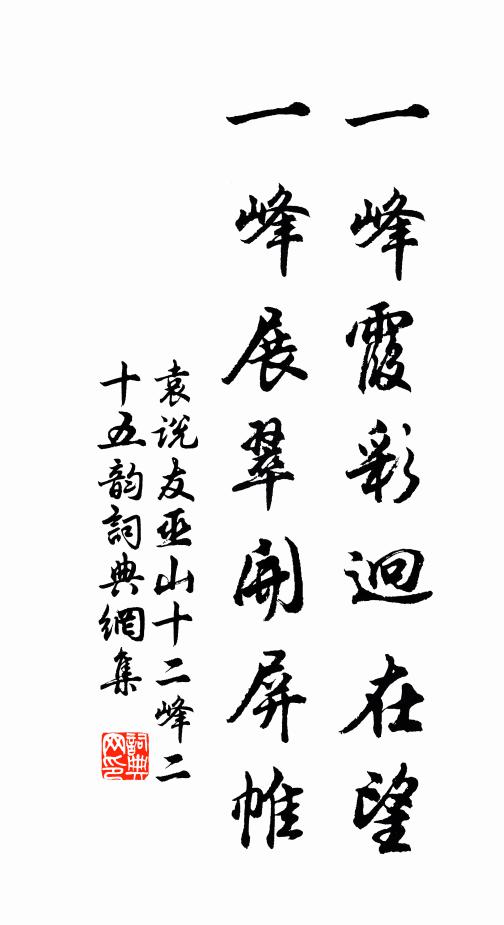 一峰霞彩迥在望
一峰展翠開屏帷
袁説友巫山十二峰二
十五韵詞典網集
詞典
网印